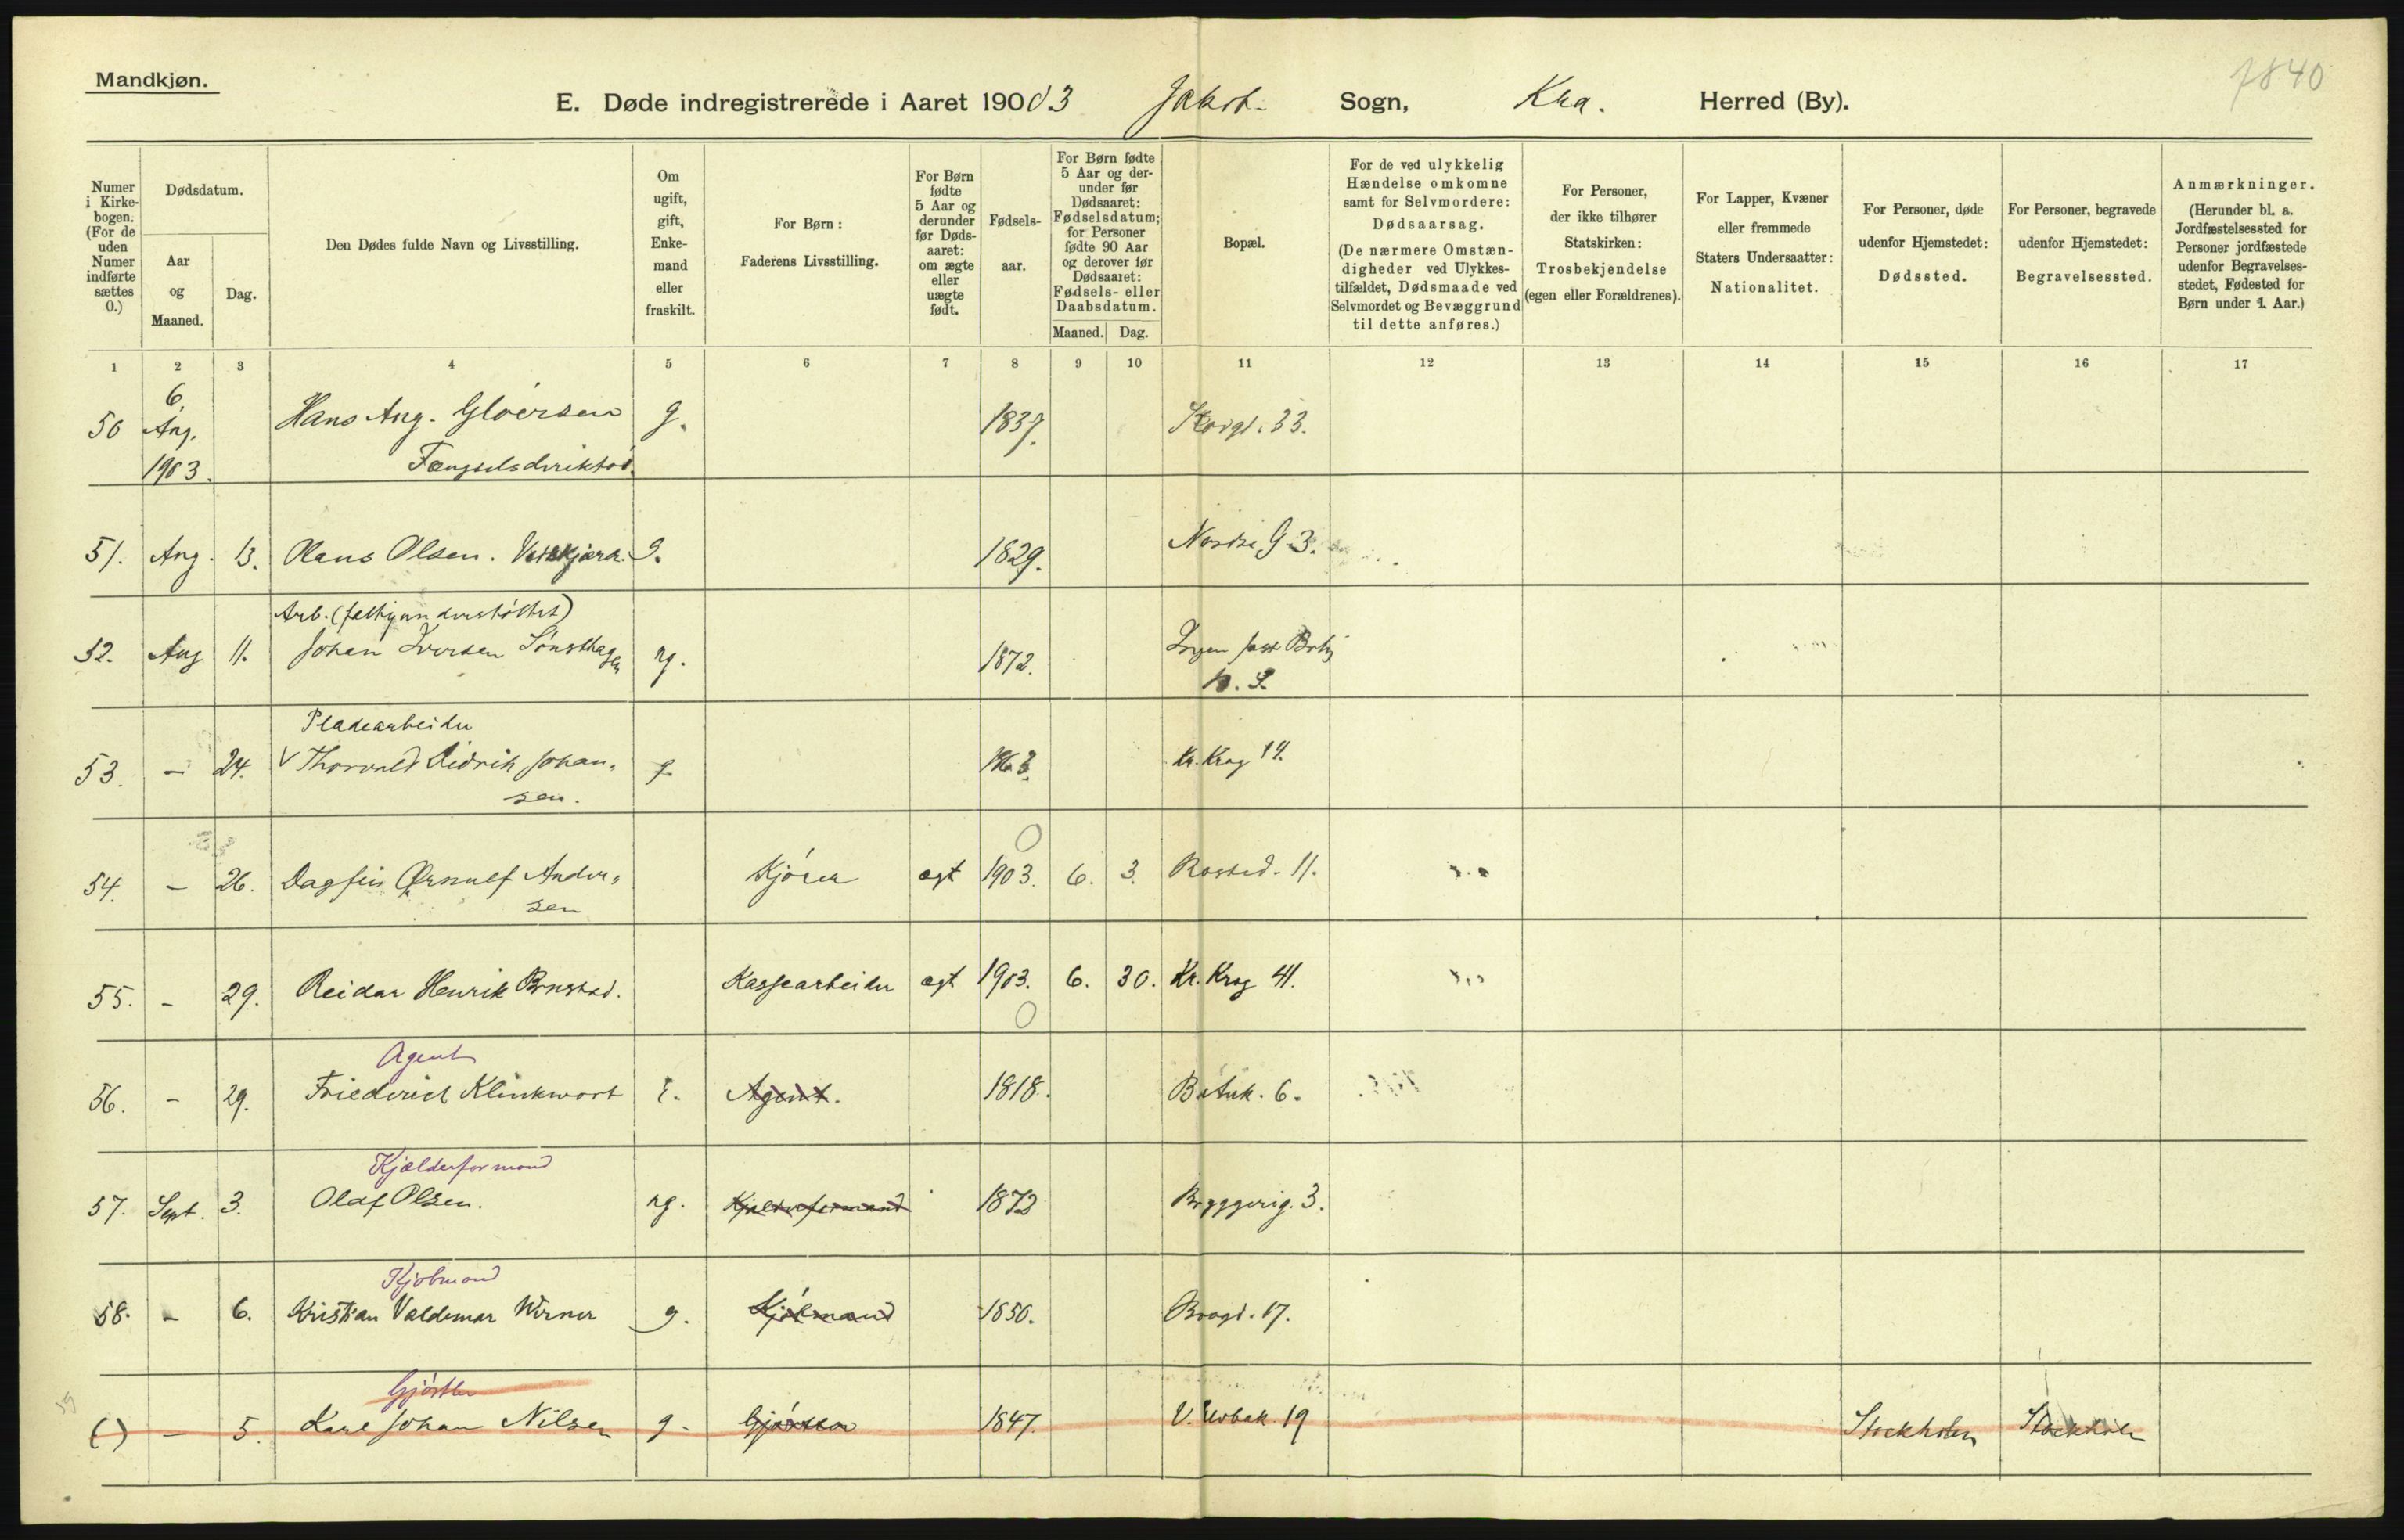 Mandkjøn.
7840
E. Døde indregistrerede i Aaret 19003 Jakob Sogn, Kra. Herred (By).
Numer i Kirkebogen. (For de uden Numer indførte sættes 0.)
Dødsdatum.
Aar og Maaned.
Dag.
Den Dødes fulde Navn og Livsstilling.
Om ugift, gift, Enkemand eller fraskilt.
For Børn: Faderens Livsstilling.
For Børn fødte 5 Aar og derunder før Dødsaaret: om ægte eller uægte født.
Fødselsaar.
For Børn fødte 5 Aar og derunder før Dødsaaret: Fødselsdatum; for Personer fødte 90 Aar og derover før Dødsaaret: Fødsels- eller Daabsdatum.
Maaned. Dag.
Bopæl.
For de ved ulykkelig Hændelse omkomne samt for Selvmordere: Dødsaarsag. (De nærmere Omstændigheder ved Ulykkestilfældet, Dødsmaade ved Selvmordet og Bevæggrund til dette anføres.)
For Personer, der ikke tilhører Statskirken: Trosbekjendelse (egen eller Forældrenes).
For Lapper, Kvæner eller fremmede Staters Undersaatter: Nationalitet.
For Personer, døde udenfor Hjemstedet: Dødssted.
For Personer, begravede udenfor Hjemstedet: Begravelsessted.
Anmærkninger. (Herunder bl. a. Jordfæstelsessted for Personer jordfæstede udenfor Begravelsesstedet, Fødested for Børn under 1. Aar.)
1 2 3 4 5 6 7 8 9 10 11 12 13 14 15 16 17
6.
50 Aug. Hans Aug. Gløersen g. 1837.
1903. Fængselsdirektør.
51. Aug. 13. Olaus Olsen. g. 1829. Nordre G. 3.
Arb. (fattigunderstøttet)
52. Aug 11. Johan Iversen Sønsthagen ug. 1872.
Pladearbeider
53. — 24. V Thorvald Didrik Johan- g. Kr. Krog 14.
sen.
54. — 26. Dagfin Ørnulf Ander- Kjører ægt 1903. 6. 3. Rosted. 11.
sen
55. - 29. Reidar Henrik Kassearbeider ægt 1903. 6. 30. Kr. Krog 41.
Agent
56. - 29. Friederich Klinkwort E. Agent. 1818. 6.
Kjælderformand
57. Sept. 3. Olaf Olsen. ug. Kjælderformand 1872 Bryggerig. 3.
Kjøbmand
58. - 6. Kristian Valdemar Werner g. Kjøbmand 1850. 17.
Gjørtler
59
() — 5. Karl Johan Nilsen g. Gjørtler 1847. V. Elvbak. 19 Stockholm Stockholm